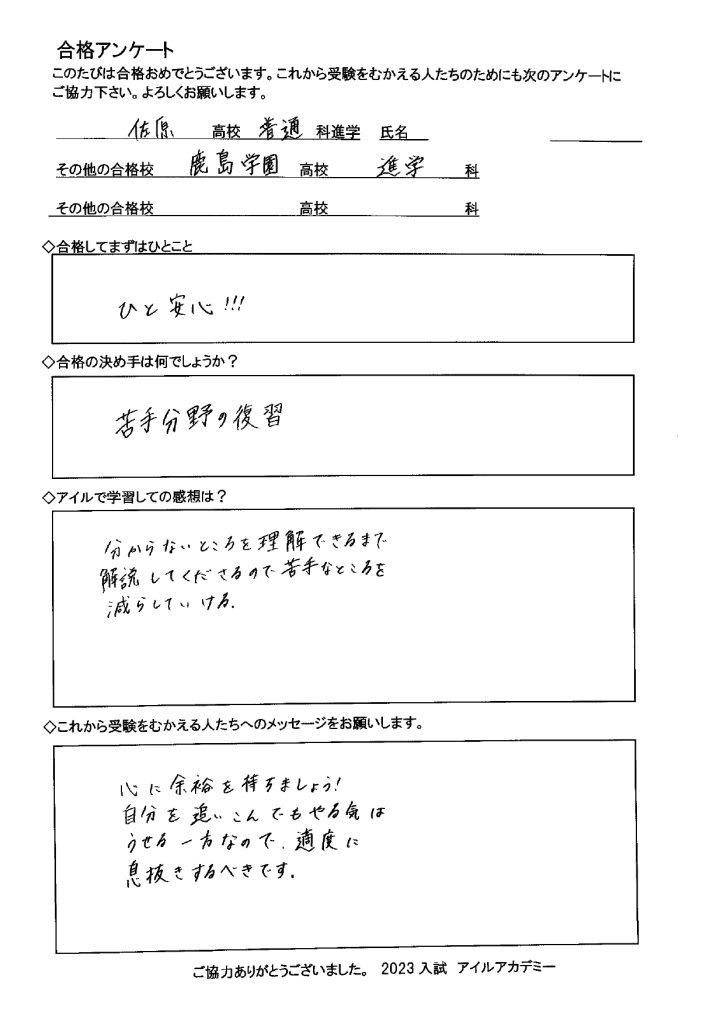 合格アンケート
このたびは合格おめでとうございます。これから受験をむかえる人たちのためにも次のアンケートに
ご協力下さい。よろしくお願いします。
佐原 高校 普通 科進学 氏名
その他の合格校 鹿島学園 高校 進学 科
その他の合格校 高校 科
◇合格してまずはひとこと
ひと安心!!!
◇合格の決め手は何でしょうか?
苦手分野の復習
◇アイルで学習しての感想は?
分からないところを理解できるまで
解説してくださるので苦手なところを
減らしていける.
◇これから受験をむかえる人たちへのメッセージをお願いします。
心に余裕を持ちましょう!
自分を追いこんでもやる気は
うせる一方なので、適度に
息抜きするべきです.
ご協力ありがとうございました。 2023入試 アイルアカデミー